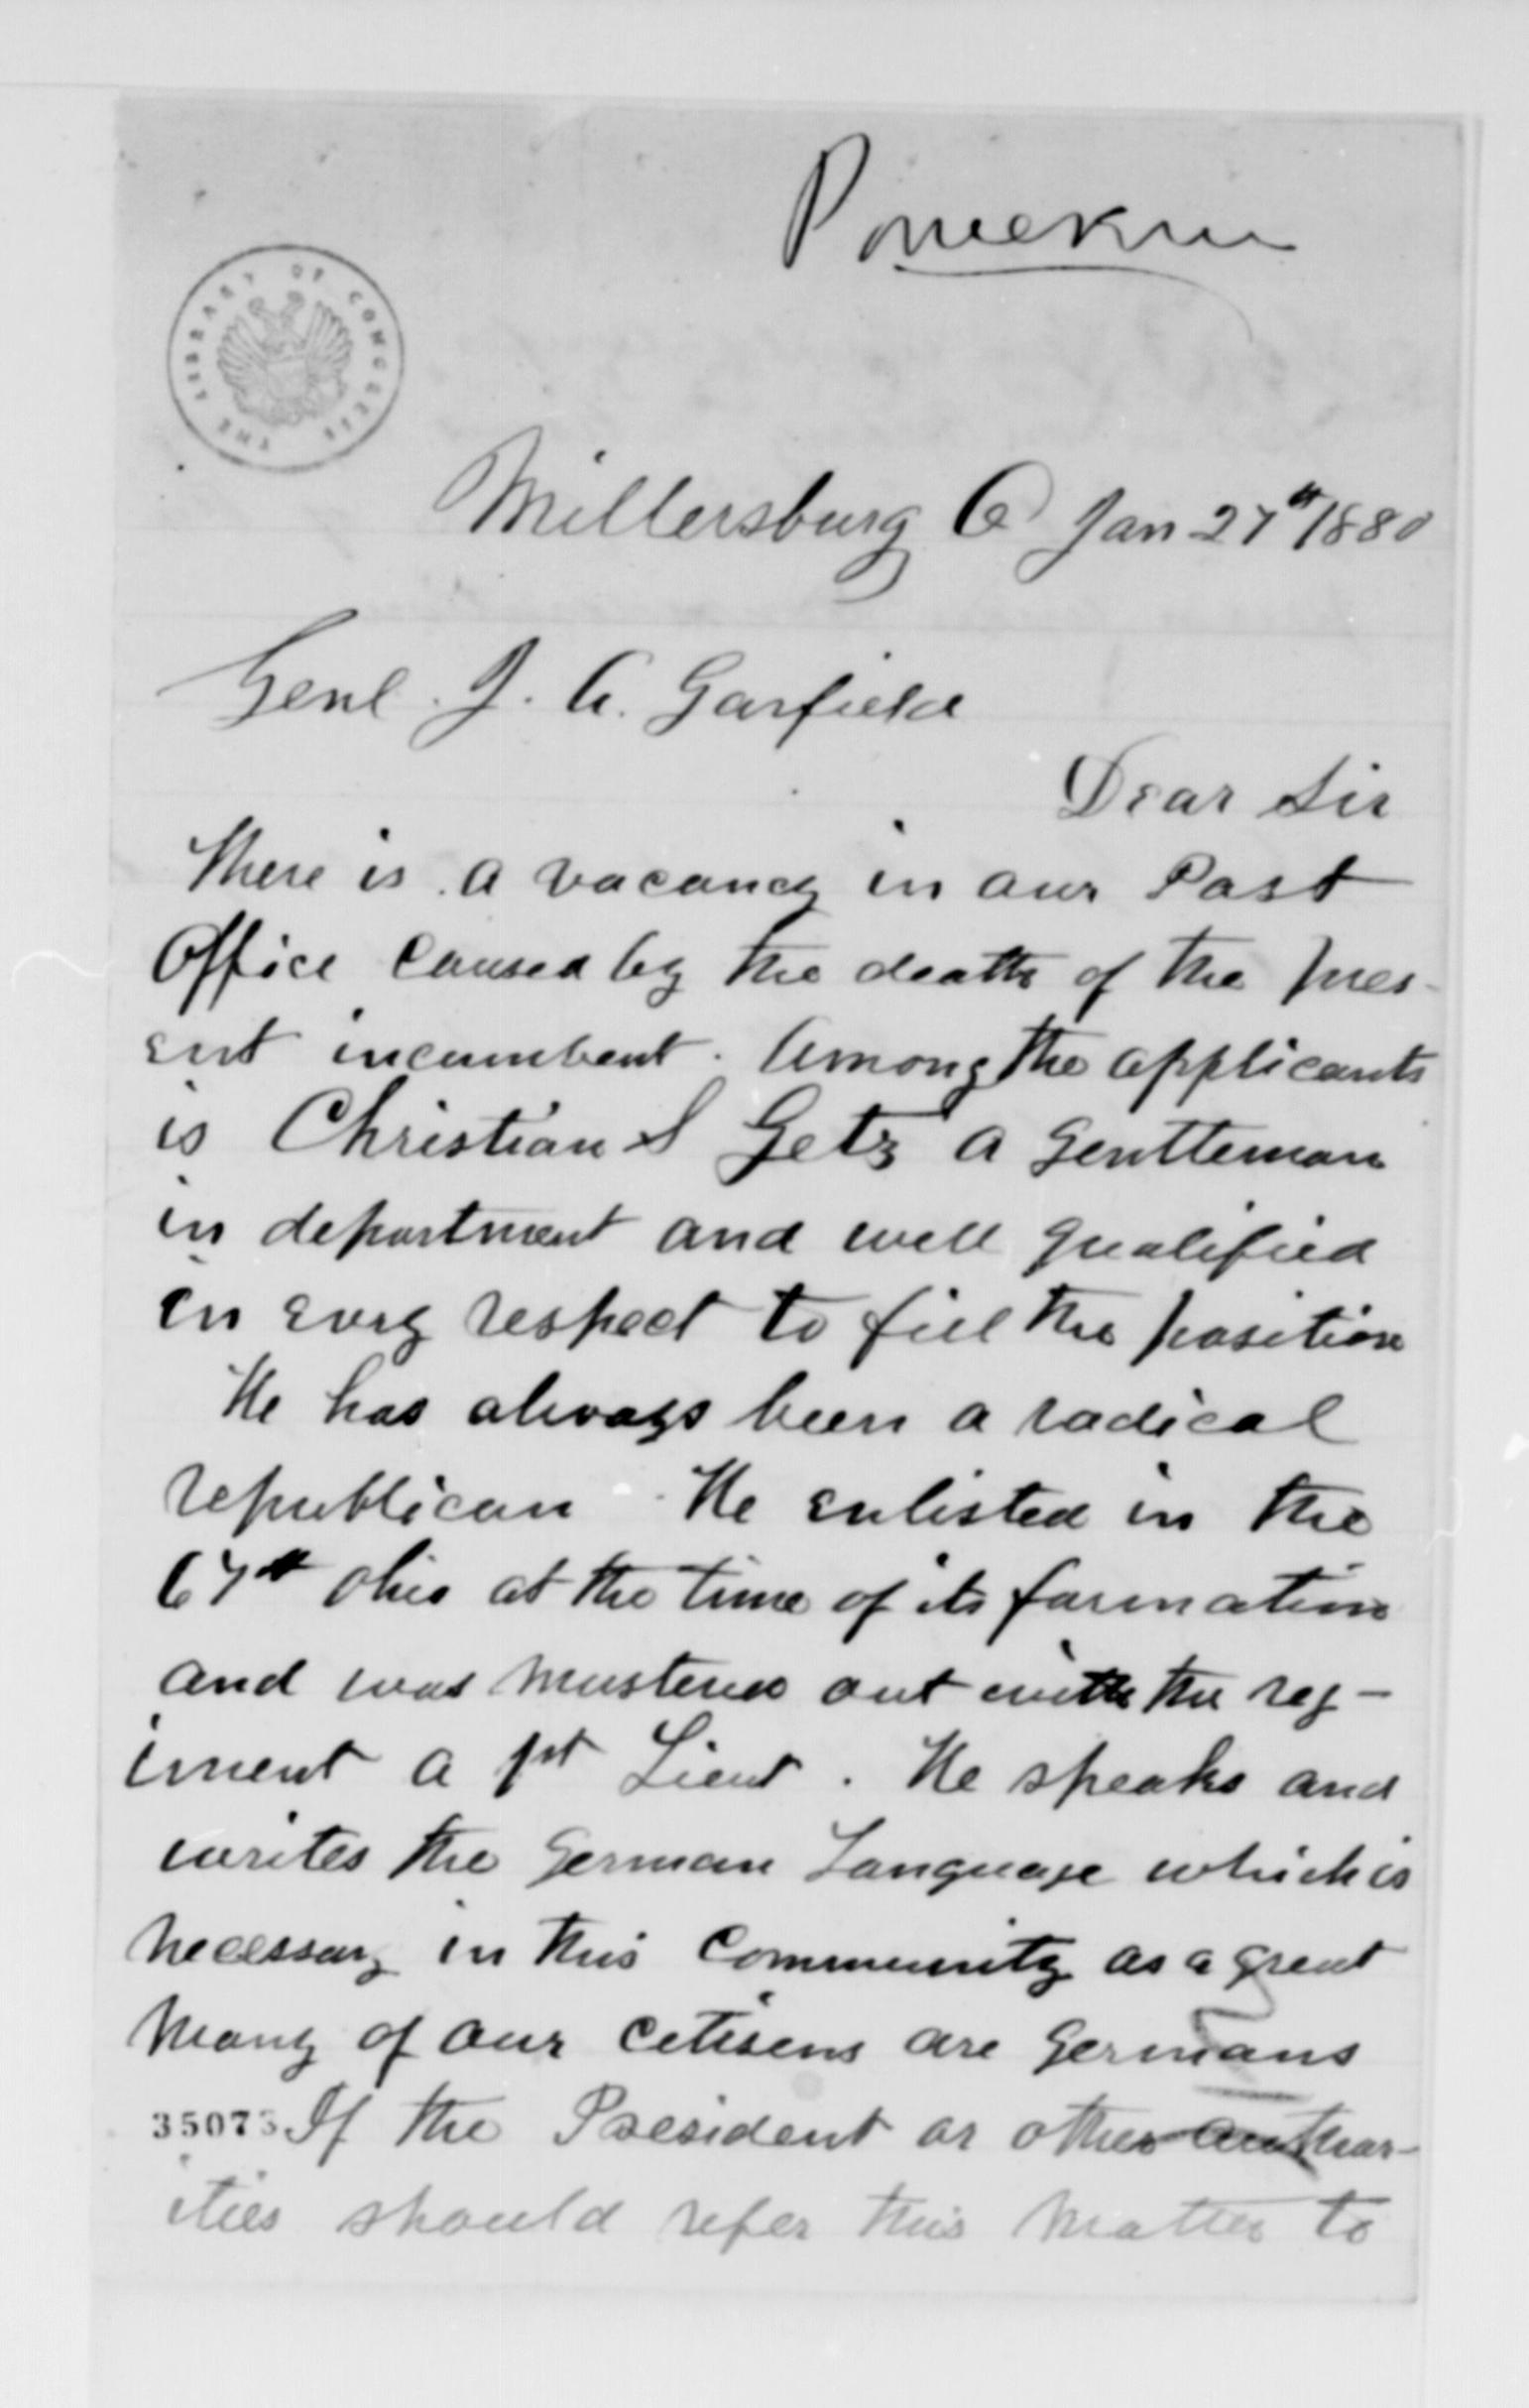 Pomerene
THE LIBRARY OF CONGRESS
Millersburg O Jan 27th 1880
Genl. J. A. Garfield
Dear Sir
There is a vacancy in our Post
Office caused by the death of the pres-
ent incumbent. Among the applicants
is Christian S Getz a gentleman
in department and well qualified
in evry respect to fill the position
He has always been a radical
republican He enlisted in the
67th Ohio at the time of its formation
and was mustered out with the reg-
iment a 1st Lieut. He speaks and
writes the German Language which is
necessary in this Community as a great
many of our citisens are Germans
35073 If the President or other author-
ities should refer this matter to